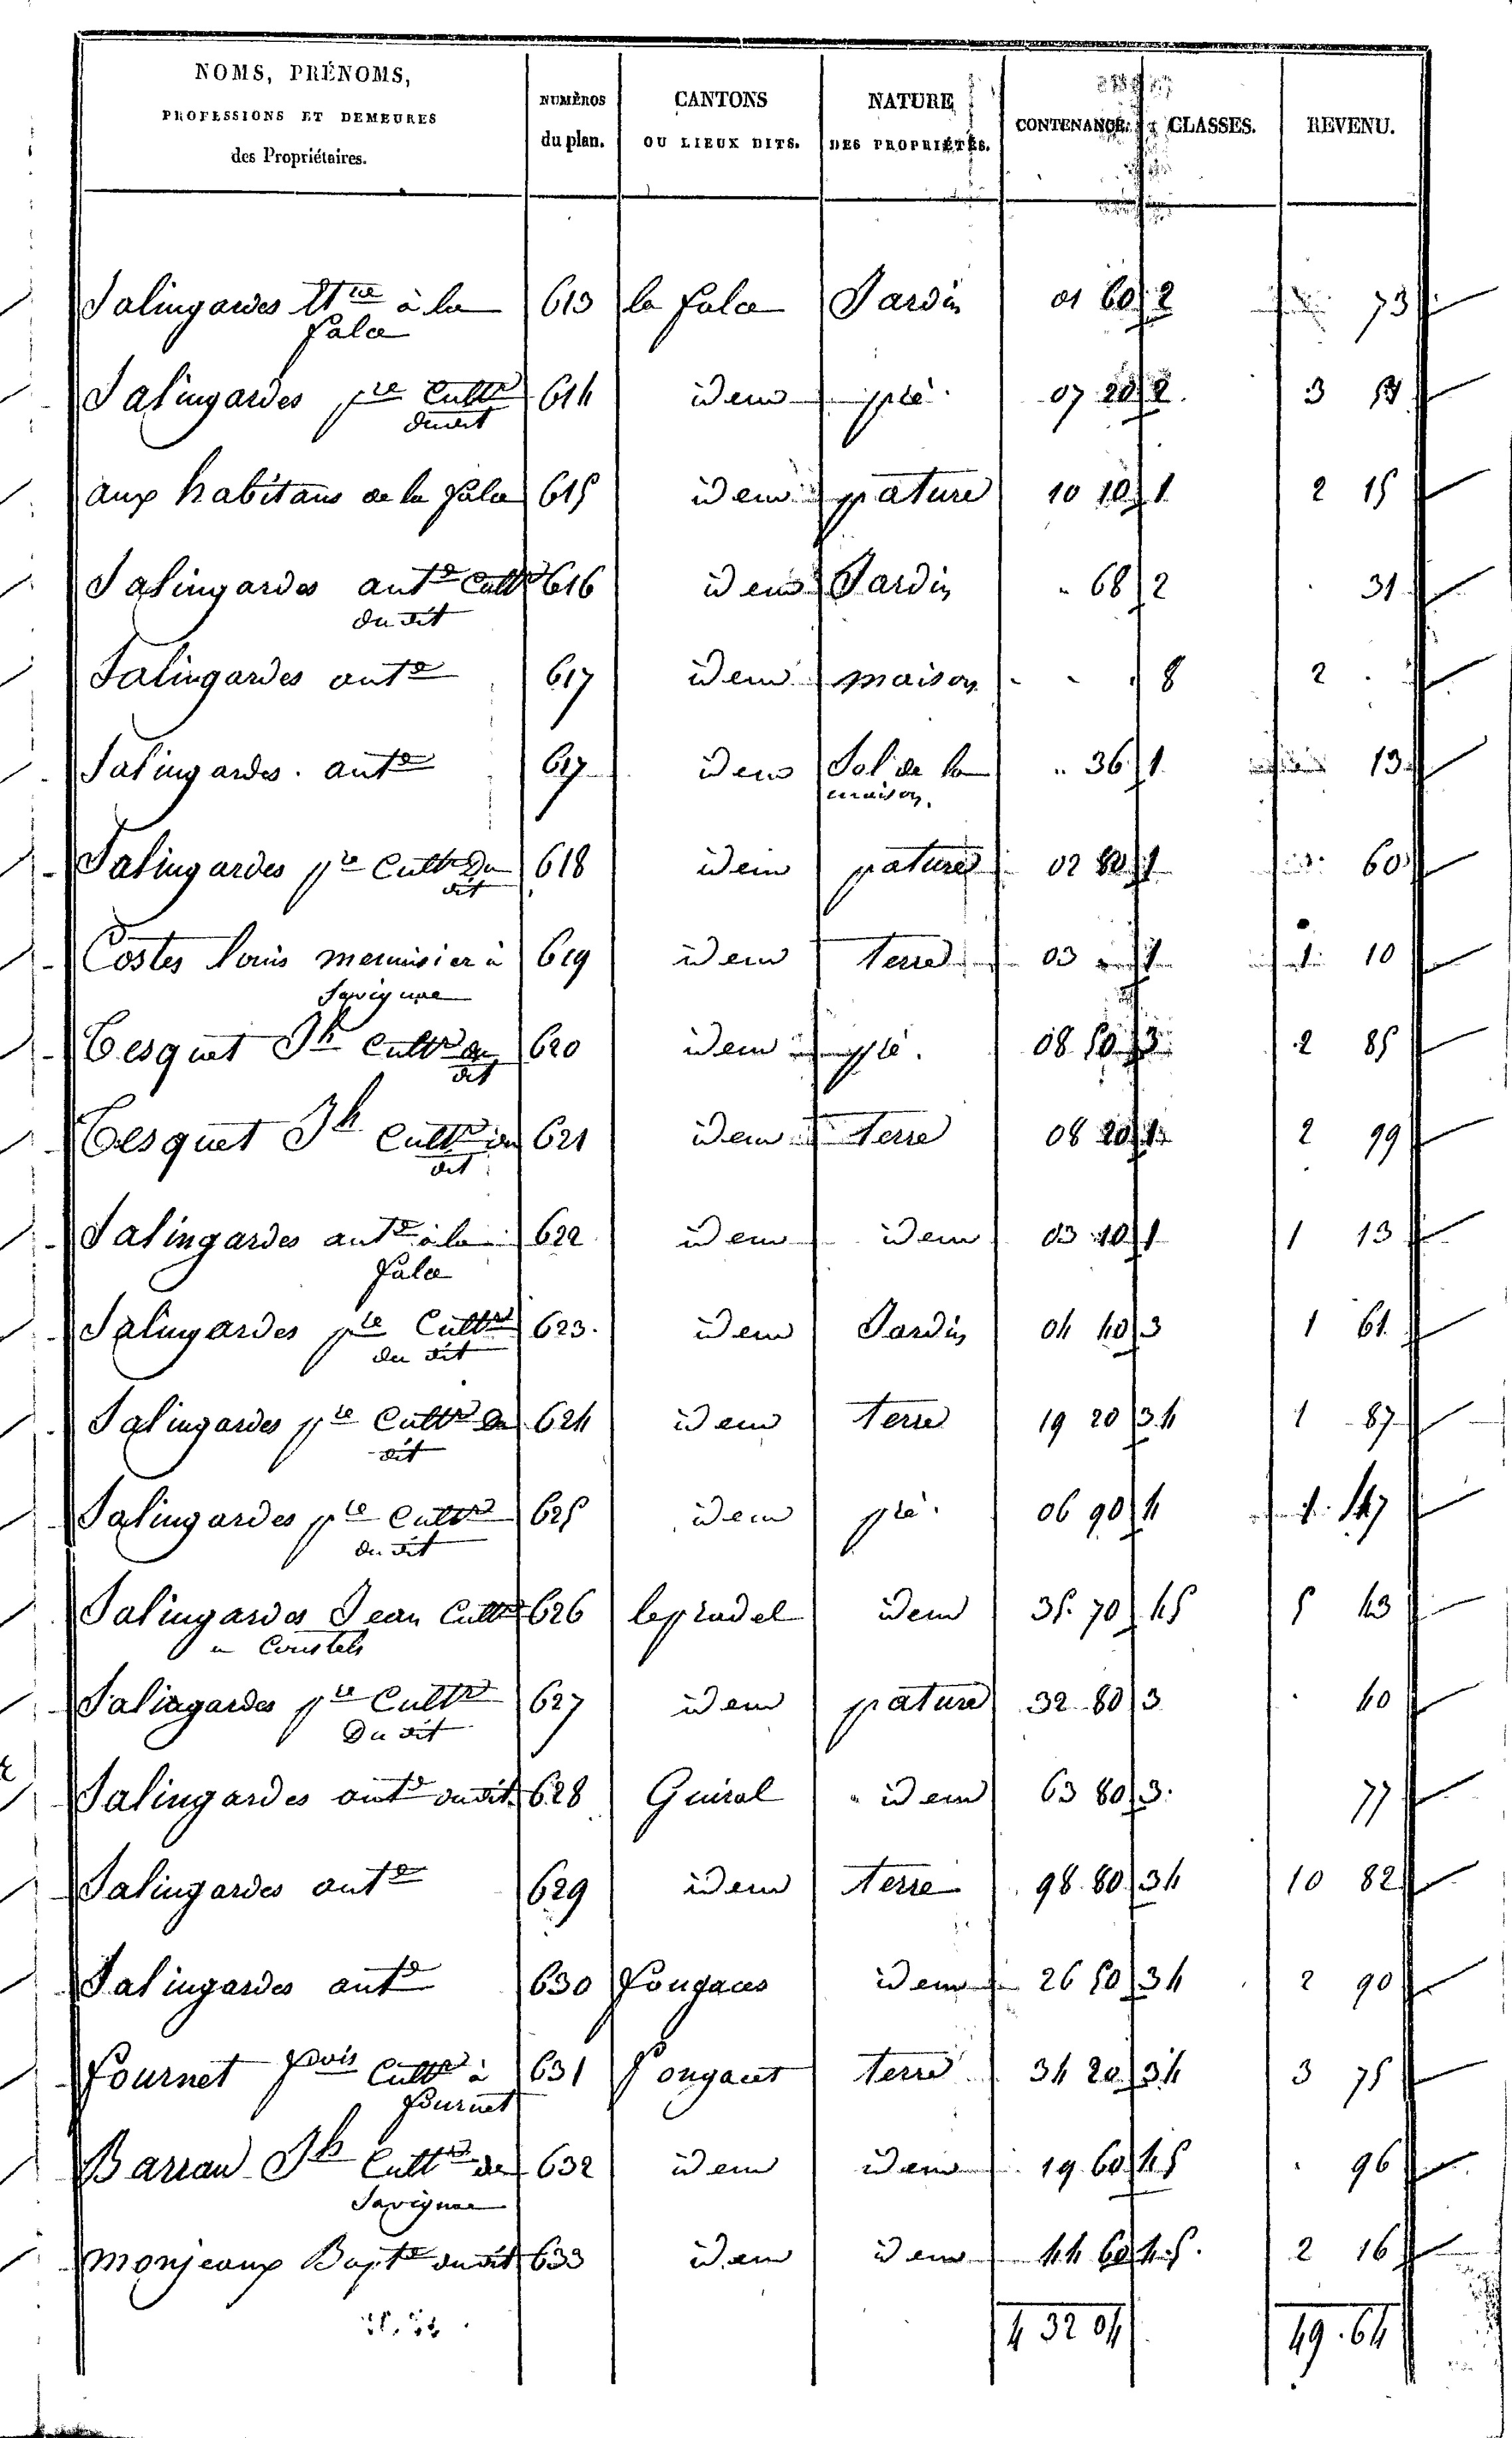 NOMS, PRÉNOMS, PROFESSIONS ET DEMEURES des Propriétaires. NUMÉROS du plan. CANTONS OU LIEUX DITS. NATURE DES PROPRIÉTÉS. CONTENANCE. CLASSES. REVENU.
Salingardes à la 613 la falce Jardin 01 60 2 73
falce
Salingardes pre Cultr 614 idem pré 07 20 2 3
dudit
aux habitans de la falce 615 idem pature 10 10 1 2 15
Salingardes ante Cultr 616 idem Jardin " 68 2 31
du dit
Salingardes ante 617 idem maison 8 2
Salingardes ante 617 idem Sol de la " 36 1 13
maison
Salingardes pre Cultr du 618 idem pature 02 80 1 60
dit
Costes louis menuisier à 619 idem terre 03 1 1 10
Savignac
Tesquet Jh Cultr du 620 idem pré 08 50 3 2 85
dit
Tesquet Jh Cultr du 621 idem terre 08 20 1 2 99
dit
Salingardes ante à la 622 idem idem 03 10 1 1 13
falce
Salingardes pre Cultr 623 idem Jardin 04 40 3 1 61
du dit
Salingardes pre Cultr du 624 idem terre 19 20 3.4 1 87
dit
Salingardes pre Cultr 625 idem pré 06 90 4 1 47
du dit
Salingardes Jean Cultr 626 le pradel idem 35 70 45 5 43
a Coustels
Salingardes pre Cultr 627 idem pature 32 80 3 40
Du dit
Salingardes ante dudit 628 Guiral idem 63 80 3 77
Salingardes ante 629 idem terre 98 80 34 10 82
Salingardes ante 630 fougaces idem 26 50 34 2 90
fournet fçois Cultr à 631 fougaces terre 34 20 34 3 75
fournet
Barrau Jh Cultr de 632 idem idem 19 60 45 96
Savignac
monjeaux Bapte dudit 633 idem idem 44 60 4.5. 2 16
4 32 04 49.64